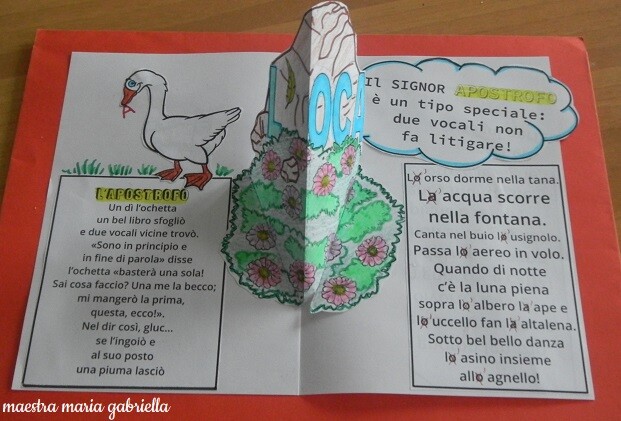 L'APOSTROFO
Un dì l'ochetta
un bel libro sfogliò
e due vocali vicine trovò.
«Sono in principio e
in fine di parola» disse
l'ochetta «basterà una sola!
Sai cosa faccio? Una me la becco;
mi mangerò la prima,
questa, ecco!».
Nel dir così, gluc...
se l'ingoiò e
al suo posto
una piuma lasciò
L'OCA
Il SIGNOR APOSTROFO
è un tipo speciale:
due vocali non
fa litigare!
Lo orso dorme nella tana.
La acqua scorre
nella fontana.
Canta nel buio lo usignolo.
Passa lo aereo in volo.
Quando di notte
c'è la luna piena
sopra lo albero la ape e
lo uccello fan la altalena.
Sotto bel bello danza
lo asino insieme
allo agnello!
maestra maria gabriella